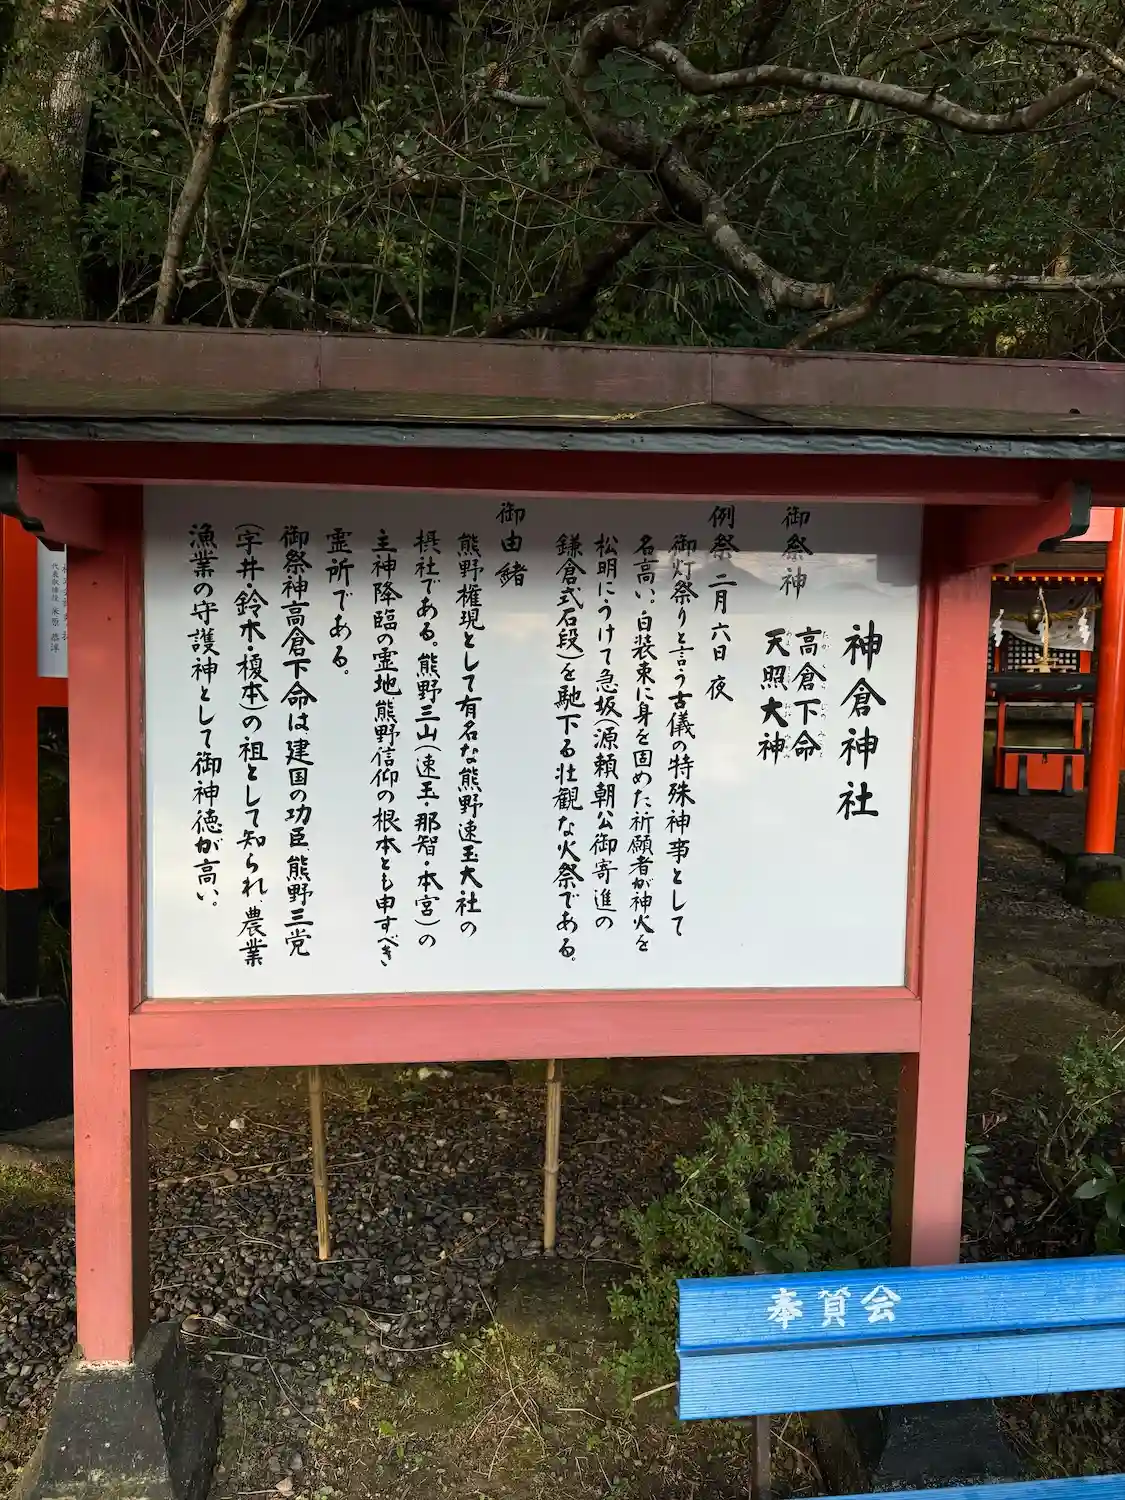 神倉神社
御祭神
高倉下命
たかくらじのみこと
天照大神
例祭 二月六日夜
御灯祭りと言う古儀の特殊神事として
名高い。白装束に身を固めた祈願者が神火を
松明にうけて急坂(源頼朝公御寄進の
鎌倉式石段)を馳下る壮観な火祭である。
御由緒
熊野権現として有名な熊野速玉大社の
摂社である。熊野三山(速玉・那智・本宮)の
主神降臨の霊地熊野信仰の根本とも申すべき
霊所である。
御祭神高倉下命は建国の功臣、熊野三党
(宇井・鈴木・榎本)の祖として知られ、農業
漁業の守護神として御神徳が高い。
奉賛会